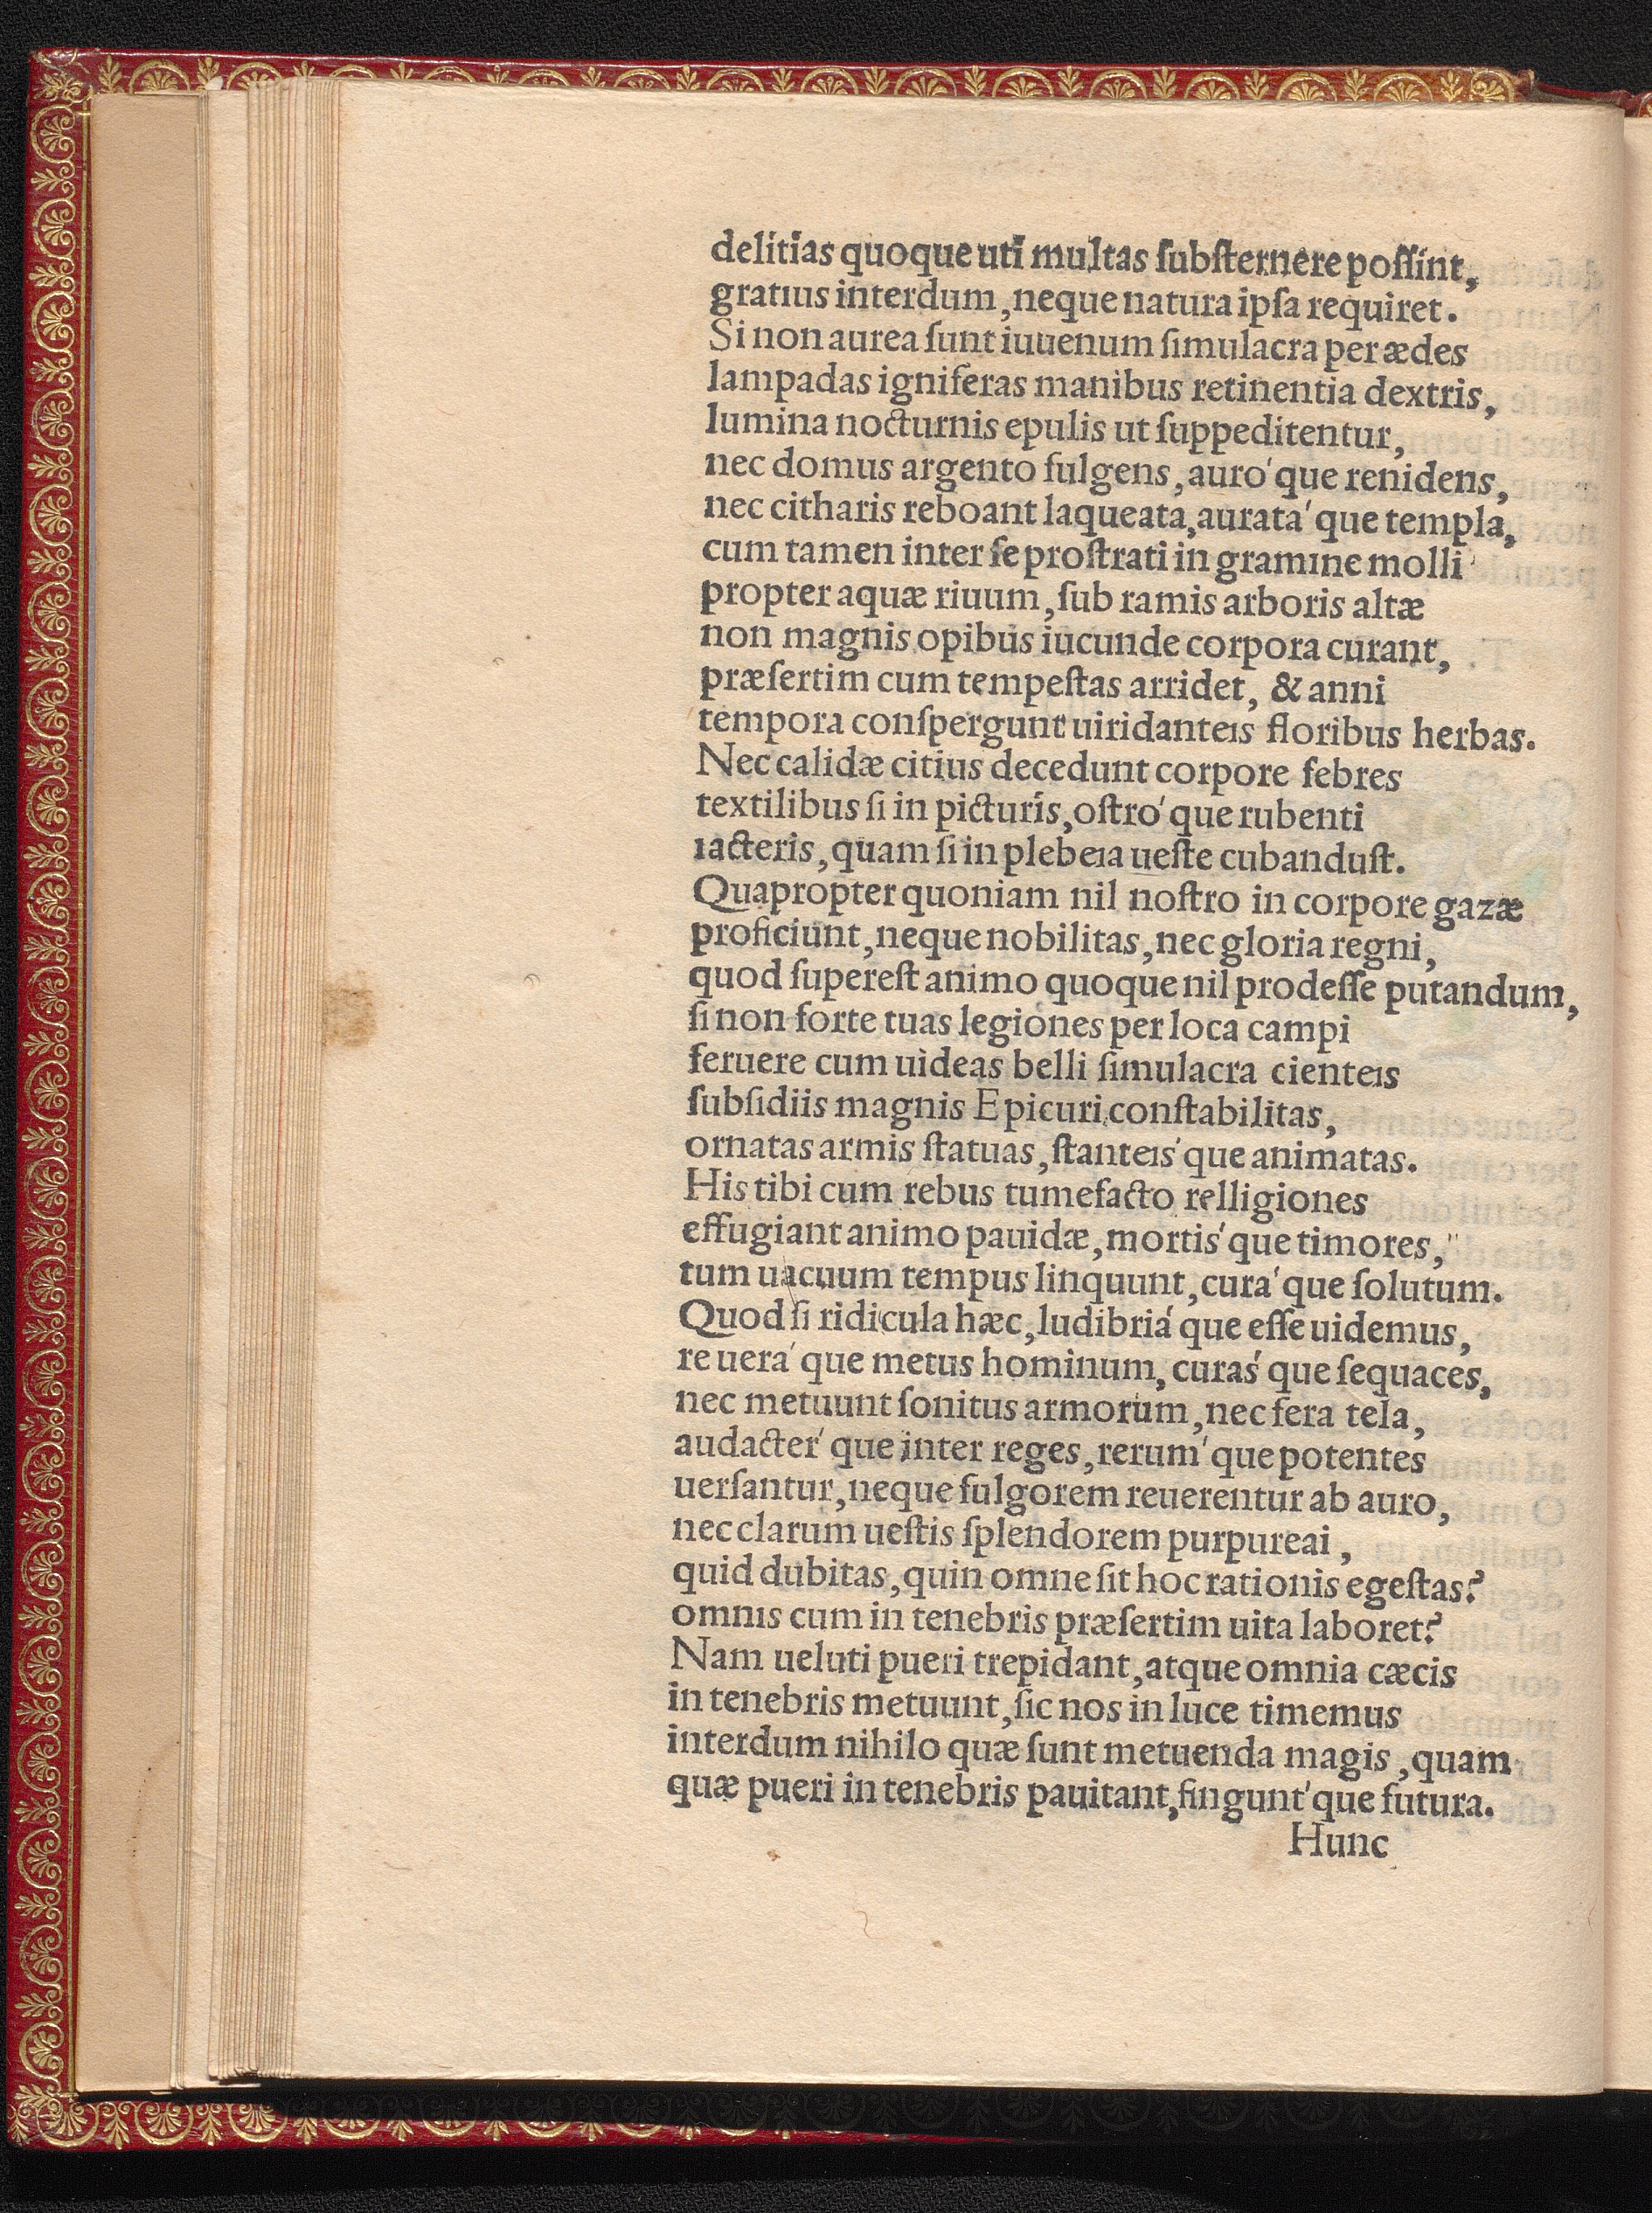 delitias quoque uti multas ſubſternere poſſint,
gratius interdum, neque natura ipſa requiret.
Si non aurea ſunt iuuenum ſimulacra per ædes
lampadas igniferas manibus retinentia dextris,
lumina nocturnis epulis ut ſuppeditentur,
nec domus argento fulgens, auro´que renidens,
nec citharis reboant laqueata, aurata´que templa,
cum tamen inter ſe proſtrati in gramine molli
propter aquæ riuum, ſub ramis arboris altæ
non magnis opibus iucunde corpora curant,
præſertim cum tempeſtas arridet, & anni
tempora conſpergunt uiridanteis floribus herbas.
Nec calidæ citius decedunt corpore febres
textilibus ſi in picturis, oſtro´que rubenti
iacteris, quam ſi in plebeia ueſte cubanduſt.
Quapropter quoniam nil noſtro in corpore gazæ
proficiunt, neque nobilitas, nec gloria regni,
quod ſupereſt animo quoque nil prodeſſe putandum,
ſi non forte tuas legiones per loca campi
feruere cum uideas belli ſimulacra cienteis
ſubſidiis magnis Epicuri conſtabilitas,
ornatas armis ſtatuas, ſtanteis´que animatas.
His tibi cum rebus tumefacto relligiones
effugiant animo pauidæ, mortis´que timores,
tum uacuum tempus linquunt, cura´que ſolutum.
Quod ſi ridicula hæc, ludibria´que eſſe uidemus,
re uera´que metus hominum, curas´que ſequaces,
nec metuunt ſonitus armorum, nec fera tela,
audacter´que inter reges, rerum´que potentes
uerſantur, neque fulgorem reuerentur ab auro,
nec clarum ueſtis ſplendorem purpureai,
quid dubitas, quin omne ſit hoc rationis egeſtas?
omnis cum in tenebris præſertim uita laboret?
Nam ueluti pueri trepidant, atque omnia cæcis
in tenebris metuunt, ſic nos in luce timemus
interdum nihilo quæ ſunt metuenda magis, quam
quæ pueri in tenebris pauitant, fingunt´que futura.
Hunc